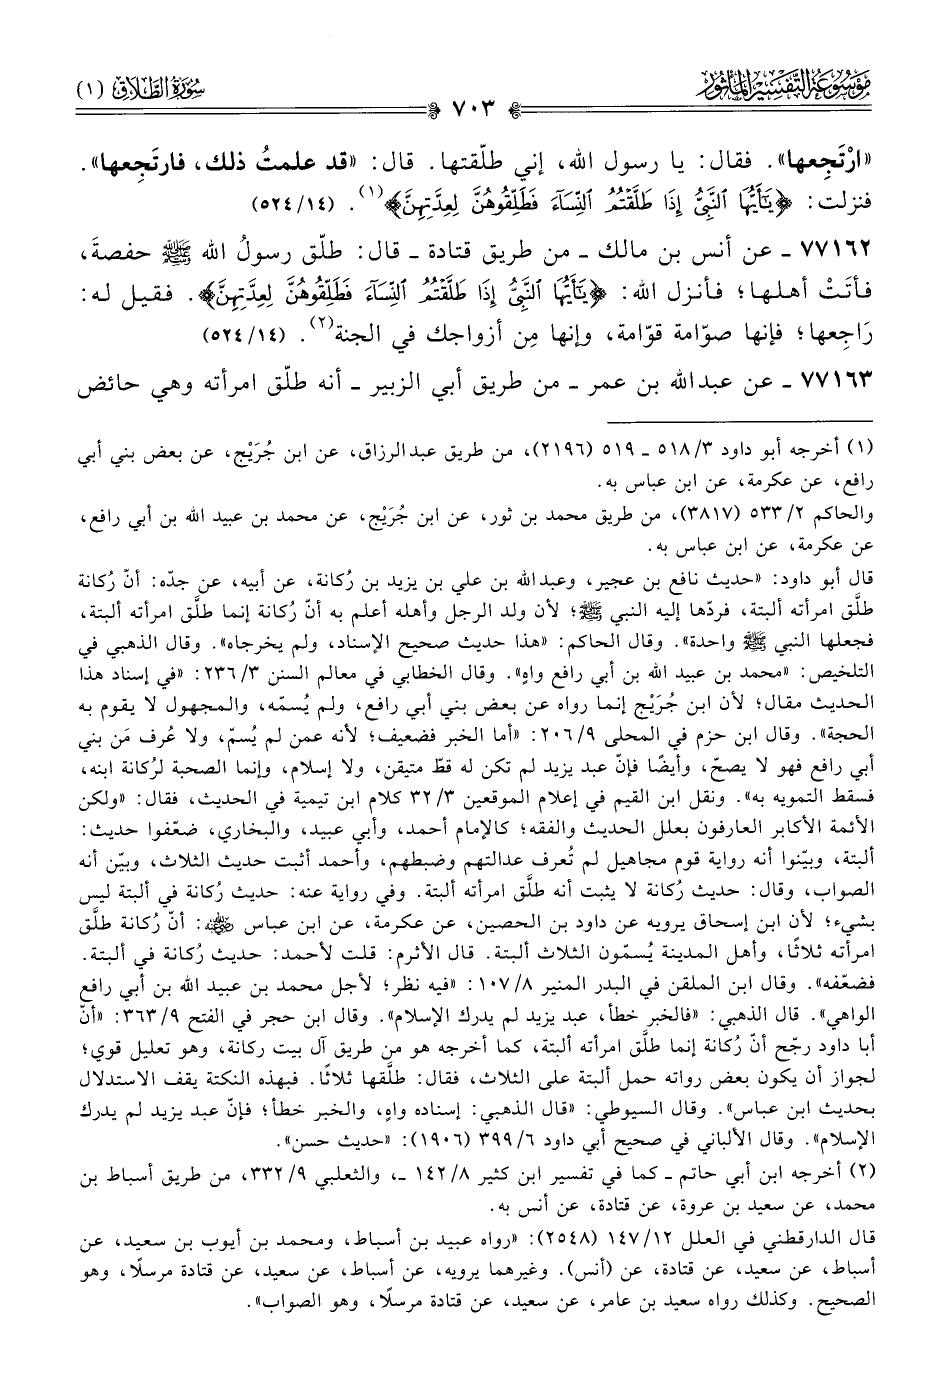 مَوْسُوعَة التَّفْسِيْر المَأْثُور
سُوْرَةُ الطَّلَاقِ (١)
٧٠٣
«ارْتَجِعها». فقال: يا رسول الله، إني طلّقتها. قال: «قد علمتُ ذلك، فارتَجِعها».
فنزلت: ﴿يَٰٓأَيُّهَا ٱلنَّبِىُّ إِذَا طَلَّقْتُمُ ٱلنِّسَآءَ فَطَلِّقُوهُنَّ لِعِدَّتِهِنَّ﴾(١). (١٤/٥٢٤)
٧٧١٦٢ ـ عن أنس بن مالك ـ من طريق قتادة ـ قال: طلّق رسولُ الله ﷺ حفصةَ،
فأتَتْ أهلها؛ فأنزل الله: ﴿يَٰٓأَيُّهَا ٱلنَّبِىُّ إِذَا طَلَّقْتُمُ ٱلنِّسَآءَ فَطَلِّقُوهُنَّ لِعِدَّتِهِنَّ﴾. فقيل له:
رَاجِعها؛ فإنها صوّامة قوّامة، وإنها مِن أزواجك في الجنة(٢). (١٤/٥٢٤)
٧٧١٦٣ ـ عن عبدالله بن عمر ـ من طريق أبي الزبير ـ أنه طلّق امرأته وهي حائض
(١) أخرجه أبو داود ٣/٥١٨ ـ ٥١٩ (٢١٩٦)، من طريق عبدالرزاق، عن ابن جُرَيْج، عن بعض بني أبي
رافع، عن عكرمة، عن ابن عباس به.
والحاكم ٢/٥٣٣ (٣٨١٧)، من طريق محمد بن ثور، عن ابن جُرَيْج، عن محمد بن عبيد الله بن أبي رافع،
عن عكرمة، عن ابن عباس به.
قال أبو داود: «حديث نافع بن عجير، وعبدالله بن علي بن يزيد بن رُكانة، عن أبيه، عن جدّه: أنّ رُكانة
طلَّق امرأته ألبتة، فردّها إليه النبي ﷺ؛ لأن ولد الرجل وأهله أعلم به أنّ رُكانة إنما طلّق امرأته ألبتة،
فجعلها النبي ﷺ واحدة». وقال الحاكم: «هذا حديث صحيح الإسناد، ولم يخرجاه». وقال الذهبي في
التلخيص: «محمد بن عبيد الله بن أبي رافع واهٍ». وقال الخطابي في معالم السنن ٣/٢٣٦: «في إسناد هذا
الحديث مقال؛ لأن ابن جُرَيْج إنما رواه عن بعض بني أبي رافع، ولم يُسمّه، والمجهول لا يقوم به
الحجة». وقال ابن حزم في المحلى ٩/٢٠٦: «أما الخبر فضعيف؛ لأنه عمن لم يُسمّ، ولا عُرف مَن بني
أبي رافع فهو لا يصحّ، وأيضًا فإنّ عبد يزيد لم تكن له قطّ متيقن، ولا إسلام، وإنما الصحبة لرُكانة ابنه،
فسقط التمويه به». ونقل ابن القيم في إعلام الموقعين ٣/٣٢ كلام ابن تيمية في الحديث، فقال: «ولكن
الأئمة الأكابر العارفون بعلل الحديث والفقه؛ كالإمام أحمد، وأبي عبيد، والبخاري، ضعّفوا حديث:
ألبتة، وبيّنوا أنه رواية قوم مجاهيل لم تُعرف عدالتهم وضبطهم، وأحمد أثبت حديث الثلاث، وبيّن أنه
الصواب، وقال: حديث رُكانة لا يثبت أنه طلَّق امرأته ألبتة. وفي رواية عنه: حديث رُكانة في ألبتة ليس
بشيء؛ لأن ابن إسحاق يرويه عن داود بن الحصين، عن عكرمة، عن ابن عباس ﵄: أنّ رُكانة طلّق
امرأته ثلاثًا، وأهل المدينة يُسمّون الثلاث ألبتة. قال الأثرم: قلت لأحمد: حديث رُكانة في ألبتة.
فضعّفه». وقال ابن الملقن في البدر المنير ٨/١٠٧: «فيه نظر؛ لأجل محمد بن عبيد الله بن أبي رافع
الواهي». قال الذهبي: «فالخبر خطأ، عبد يزيد لم يدرك الإسلام». وقال ابن حجر في الفتح ٩/٣٦٣: «أنّ
أبا داود رجّح أنّ رُكانة إنما طلَّق امرأته ألبتة، كما أخرجه هو من طريق آل بيت ركانة، وهو تعليل قوي؛
لجواز أن يكون بعض رواته حمل ألبتة على الثلاث، فقال: طلّقها ثلاثًا. فبهذه النكتة يقف الاستدلال
بحديث ابن عباس». وقال السيوطي: «قال الذهبي: إسناده واهٍ، والخبر خطأ؛ فإنّ عبد يزيد لم يدرك
الإسلام». وقال الألباني في صحيح أبي داود ٦/٣٩٩ (١٩٠٦): «حديث حسن».
(٢) أخرجه ابن أبي حاتم ـ كما في تفسير ابن كثير ٨/١٤٢ ـ، والثعلبي ٩/٣٣٢، من طريق أسباط بن
محمد، عن سعيد بن عروة، عن قتادة، عن أنس به.
قال الدارقطني في العلل ١٢/١٤٧ (٢٥٤٨): «رواه عبيد بن أسباط، ومحمد بن أيوب بن سعيد، عن
أسباط، عن سعيد، عن قتادة، عن (أنس). وغيرهما يرويه، عن أسباط، عن سعيد، عن قتادة مرسلًا، وهو
الصحيح. وكذلك رواه سعيد بن عامر، عن سعيد، عن قتادة مرسلًا، وهو الصواب».